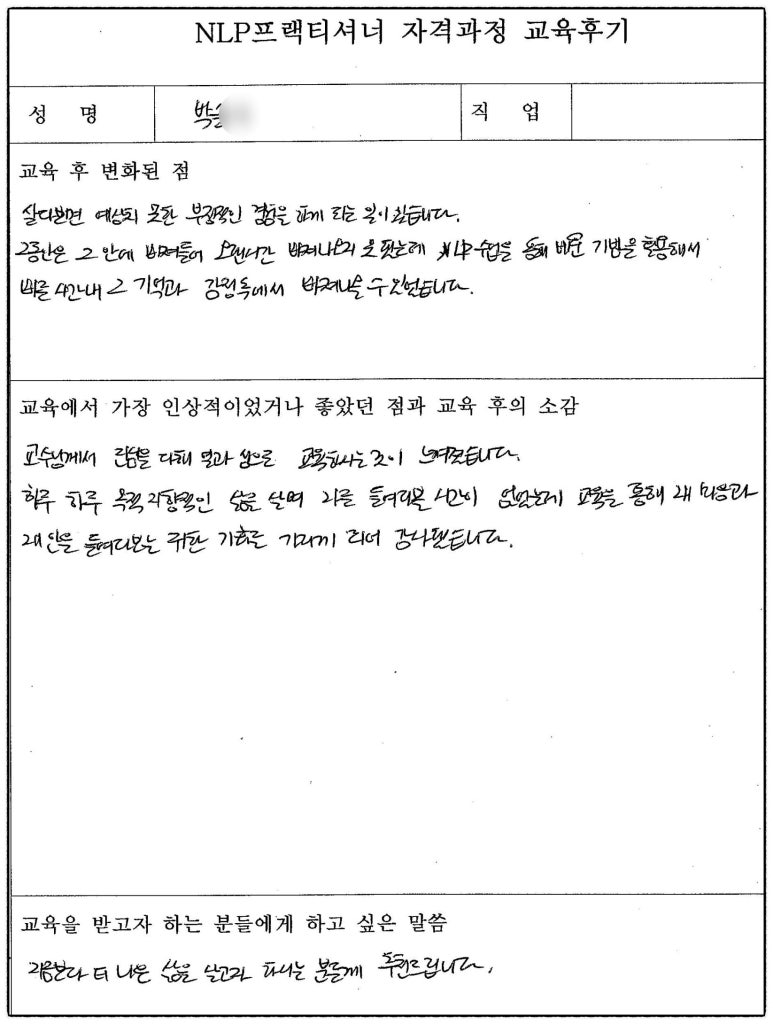 NLP프랙티셔너 자격과정 교육후기
성 명 박 직 업
교육 후 변화된 점
살다보면 예상치 못한 부정적인 경험을 하게 되는 일이 있습니다.
그동안은 그 안에 빠져들어 오랜시간 빠져나오지 못했는데 NLP 수업을 통해 배운 기법을 활용해서
빠른 시간내 그 기억과 감정속에서 빠져나올 수 있었습니다.
교육에서 가장 인상적이었거나 좋았던 점과 교육 후의 소감
교수님께서 진심을 다해 열과 성으로 교육하시는 것이 느껴졌습니다.
하루 하루 목적 지향적인 삶을 살며 나를 들여다볼 시간이 없었는데 교육을 통해 내 마음과
내 안을 들여다보는 귀한 기회를 가지게 되어 감사했습니다.
교육을 받고자 하는 분들에게 하고 싶은 말씀
지금보다 더 나은 삶을 살고자 하시는 분들께 추천드립니다.